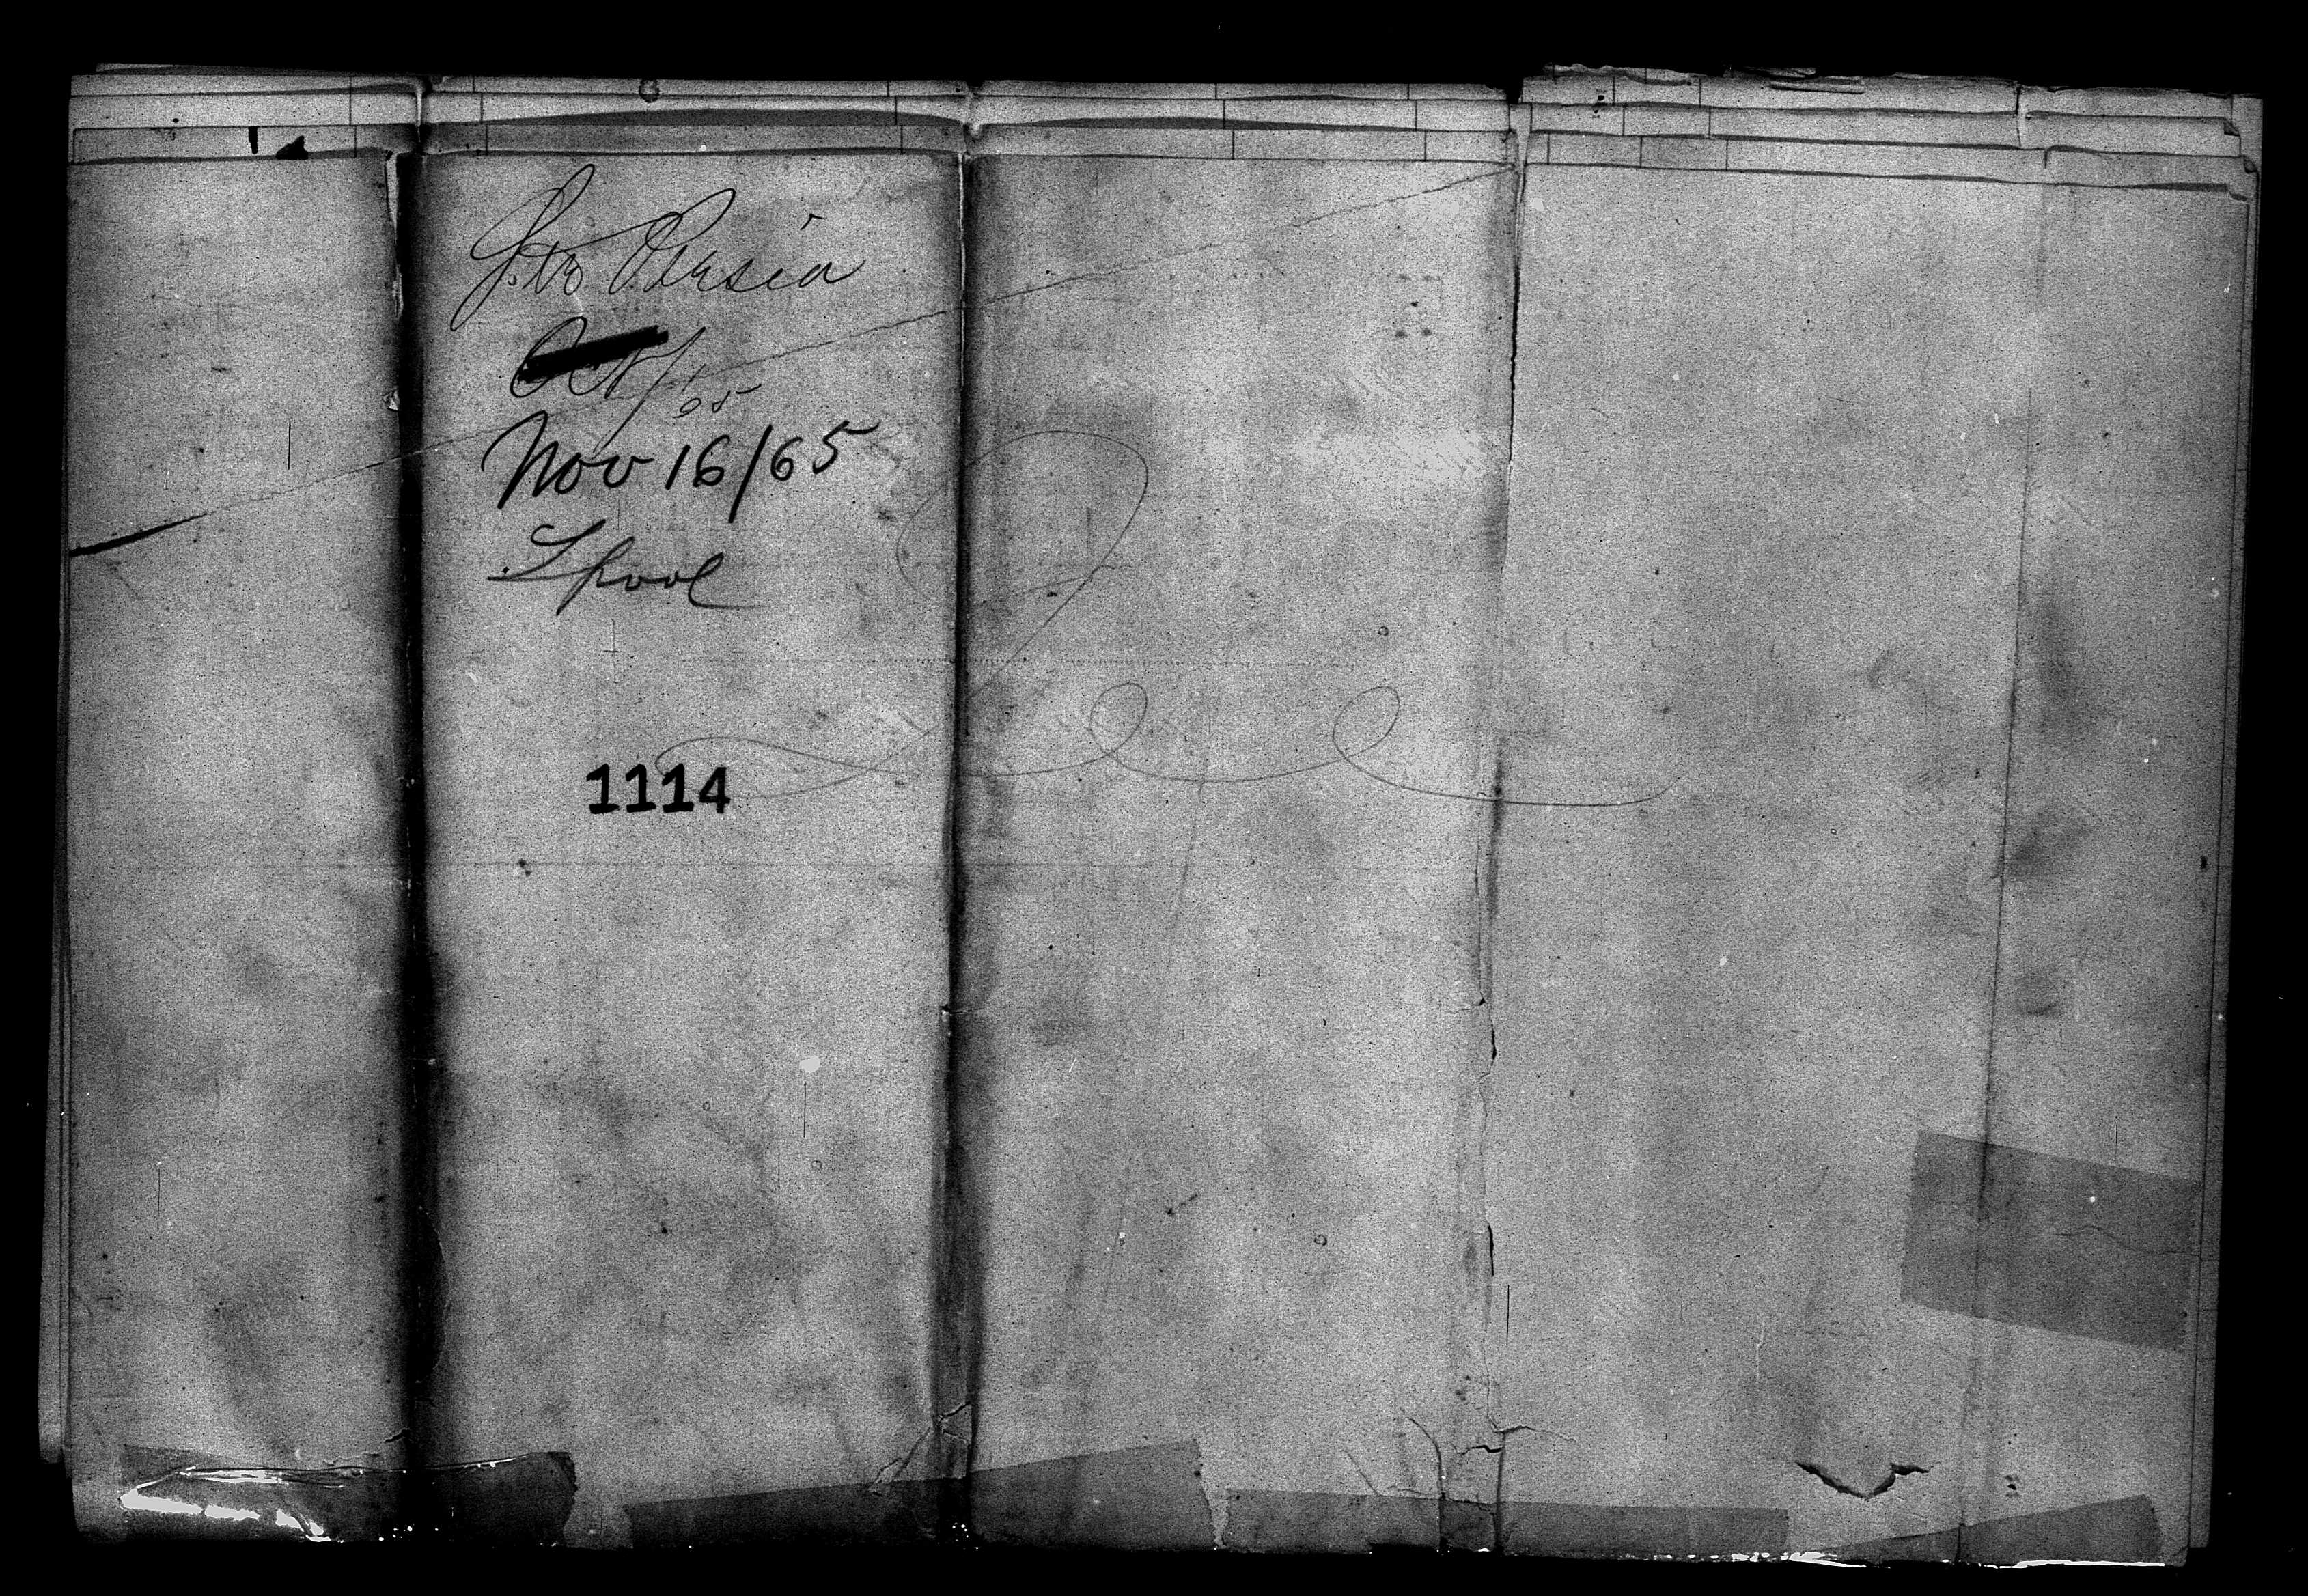 Str Persia
Oct/65
Nov 16/65
Lpool
1114